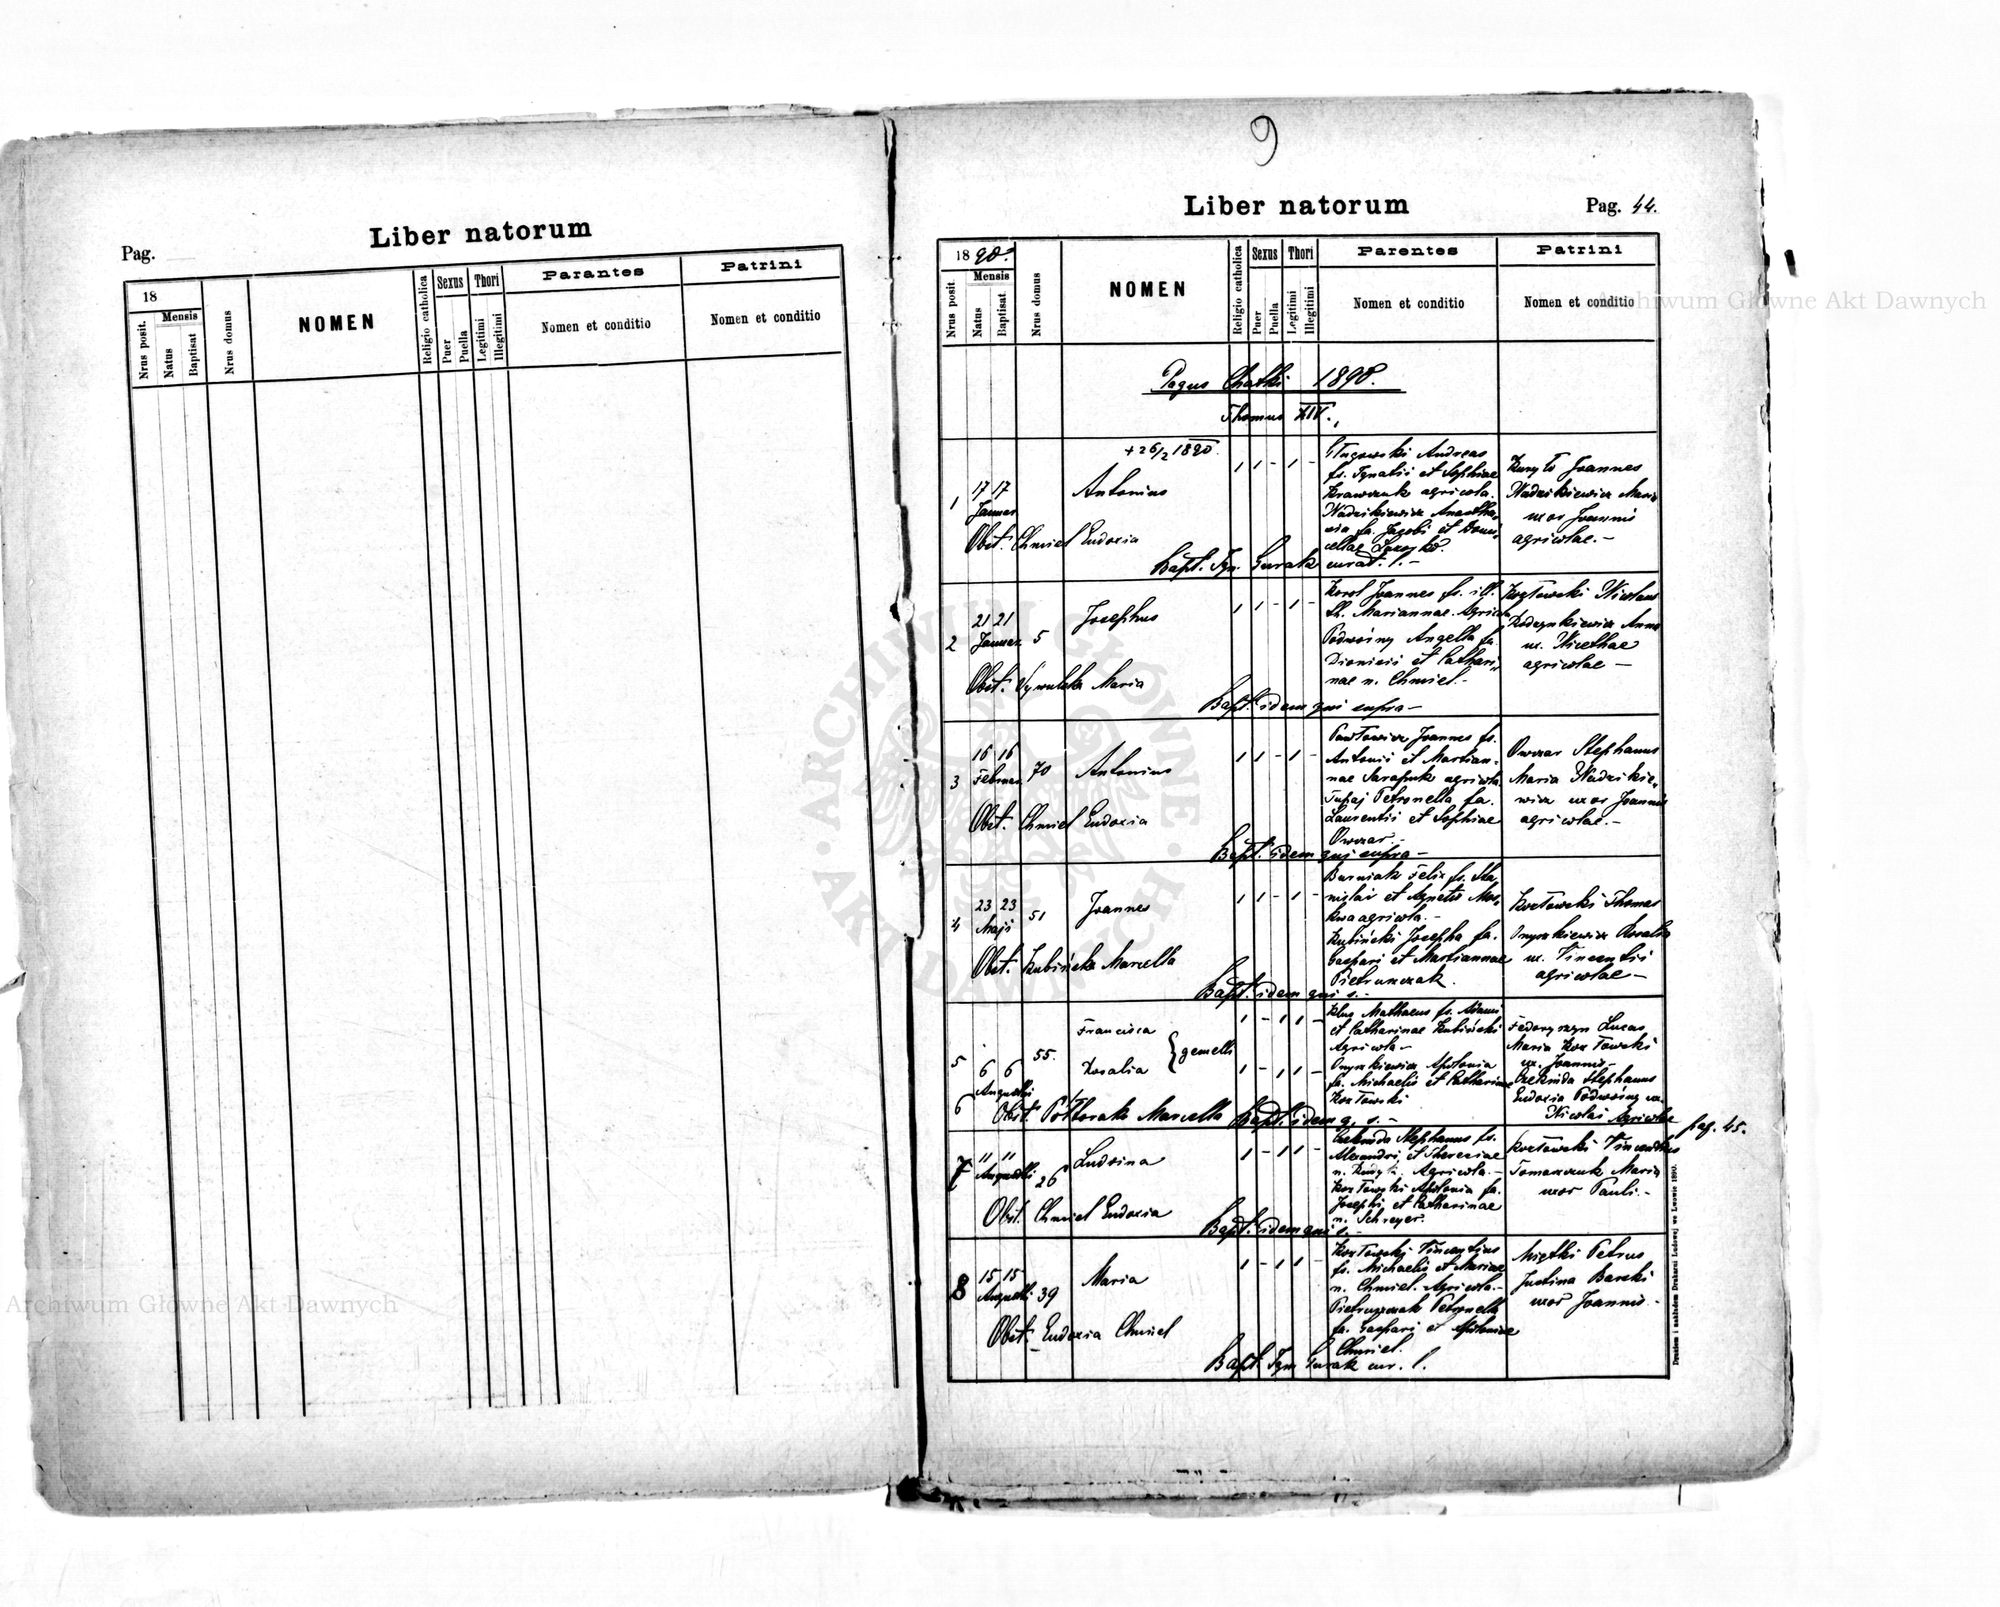 Liber natorum
Pag.
18
Mensis
Nrus posit.
Natus
Baptisat
Nrus domus
NOMEN
Religio catholica
Sexus
Puer
Puella
Thori
Legitimi
Illegitimi
Parantes
Nomen et conditio
Patrini
Nomen et conditio
9
Liber natorum
Pag. 44.
1890.
Mensis
Nrus posit
Natus
Baptisat.
Nrus domus
NOMEN
Religio catholica
Sexus
Puer
Puella
Thori
Legitimi
Illegitimi
Parentes
Nomen et conditio
Patrini
Nomen et conditio
Pagus Chatki 1890.
Thomus XIV.
1
17 17
Januar
+ 26/2 1890.
Antonius
Obst. Chmiel Eudoxia
Bapt. Ign. Gurak curat. l. -
Andreas
fs. Ignatii et Sophiae
Krawczuk agricola.
Nadzikiewicz Anastha-
sia fa. Jacobi et Domi-
cellae
Joannes
Nadzikiewicz Maria
uxor Joannis
agricolae. -
2
21 21
Januar 5
Josephus
Obst. Maria
Bapt. idem qui supra -
Korol Joannes fs. ill.
th. Mariannae. Agricola
Podwsiny Angella fa.
Dionisii et Cathari-
nae n. Chmiel. -
Kozłowski Nicolaus
Anna
ux. Nicethae
agricolae -
3
16 16
Februar 70
Antonius
Obst. Chmiel Eudoxia
Bapt. idem qui supra -
Pawłowicz Joannes fs.
Antonii et Marian-
nae Sarafink agricola.
Tupaj Petronella fa.
Laurentii et Sophiae
Owczar -
Owczar Stephanus
Maria Nadzikie-
wicz uxor Joannis
agricolae. -
4
23 23
Maji 51
Joannes
Obst. Kubińska Marcella
Bapt. idem qui s. -
Burniak Felix fs. Sta-
nislai et Agnetis Mos-
kwa agricola. -
Kubiński Josepha fa.
Gaspari et Mariannae
Pietruszczak.
Kozłowski Thomas
Onyszkiewicz Rosalia
ux. Vincentii
agricolae -
5
6
6 6
Augusti
55.
Francisca
Rosalia
gemelli
Obst. Półtorak Marcella
Bapt. idem q. s. -
Kluz Mathaeus fs. Adami
et Catharinae Kubiński
Agricola -
Onyszkiewicz Apolonia
fa. Michaelis et Catharinae
Kozłowski
Fedoryszyn Lucas
Maria Kozłowski
ux. Joannis -
Stephanus
Eudoxia Podwsiny ux.
Nicolai Agricolae
pag. 45.
7
11 11
Augusti 26
Ludvina
Obst. Chmiel Eudoxia
Bapt. idem qui s. -
Stephanus fs.
Alexandri et Theresiae
n. Agricola. -
Kozłowski Apolonia fa.
Josephi et Catharinae
n. Schreyer.
Kozłowski Vincentius
Tomaszczuk Maria
uxor Pauli. -
8
15 15
Augusti 39
Maria
Obst. Eudoxia Chmiel
Bapt. Ign. Gurak cur. l.
Kozłowski Vincentius
fs. Michaelis et Mariae
n. Chmiel. Agricola. -
Pietruszczak Petronella
fa. Gaspari et Apoloniae
Chmiel.
Miętki Petrus
Justina Barski
uxor Joannis -
Drukiem i nakładem Drukarni Ludowej we Lwowie 1890.
ARCHIWUM GŁÓWNE AKT DAWNYCH
Archiwum Główne Akt Dawnych
Archiwum Główne Akt Dawnych